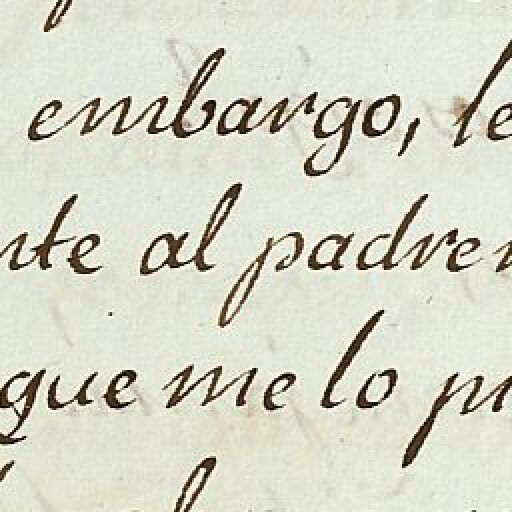 embargo, le
nte al padren
que me lo pu